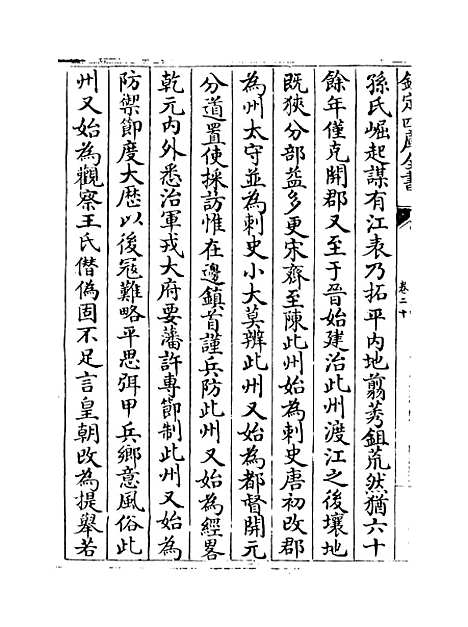 欽定四庫全書
卷二十
孫氏崛起謀有江表乃拓平内地翦莠鉏荒然猶六十
餘年僅克開郡又至于晉始建治此州渡江之後壤地
既狹分部益多更宋齊至陳此州始為刺史唐初改郡
為州太守並為刺史小大莫辨此州又始為都督開元
分道置使採訪惟在邊鎮首謹兵防此州又始為經畧
乾元内外悉治軍戎大府要藩許專節制此州又始為
防禦節度大歴以後冦難略平思弭甲兵鄉意風俗此
州又始為觀察王氏僣偽固不足言皇朝改為提舉若